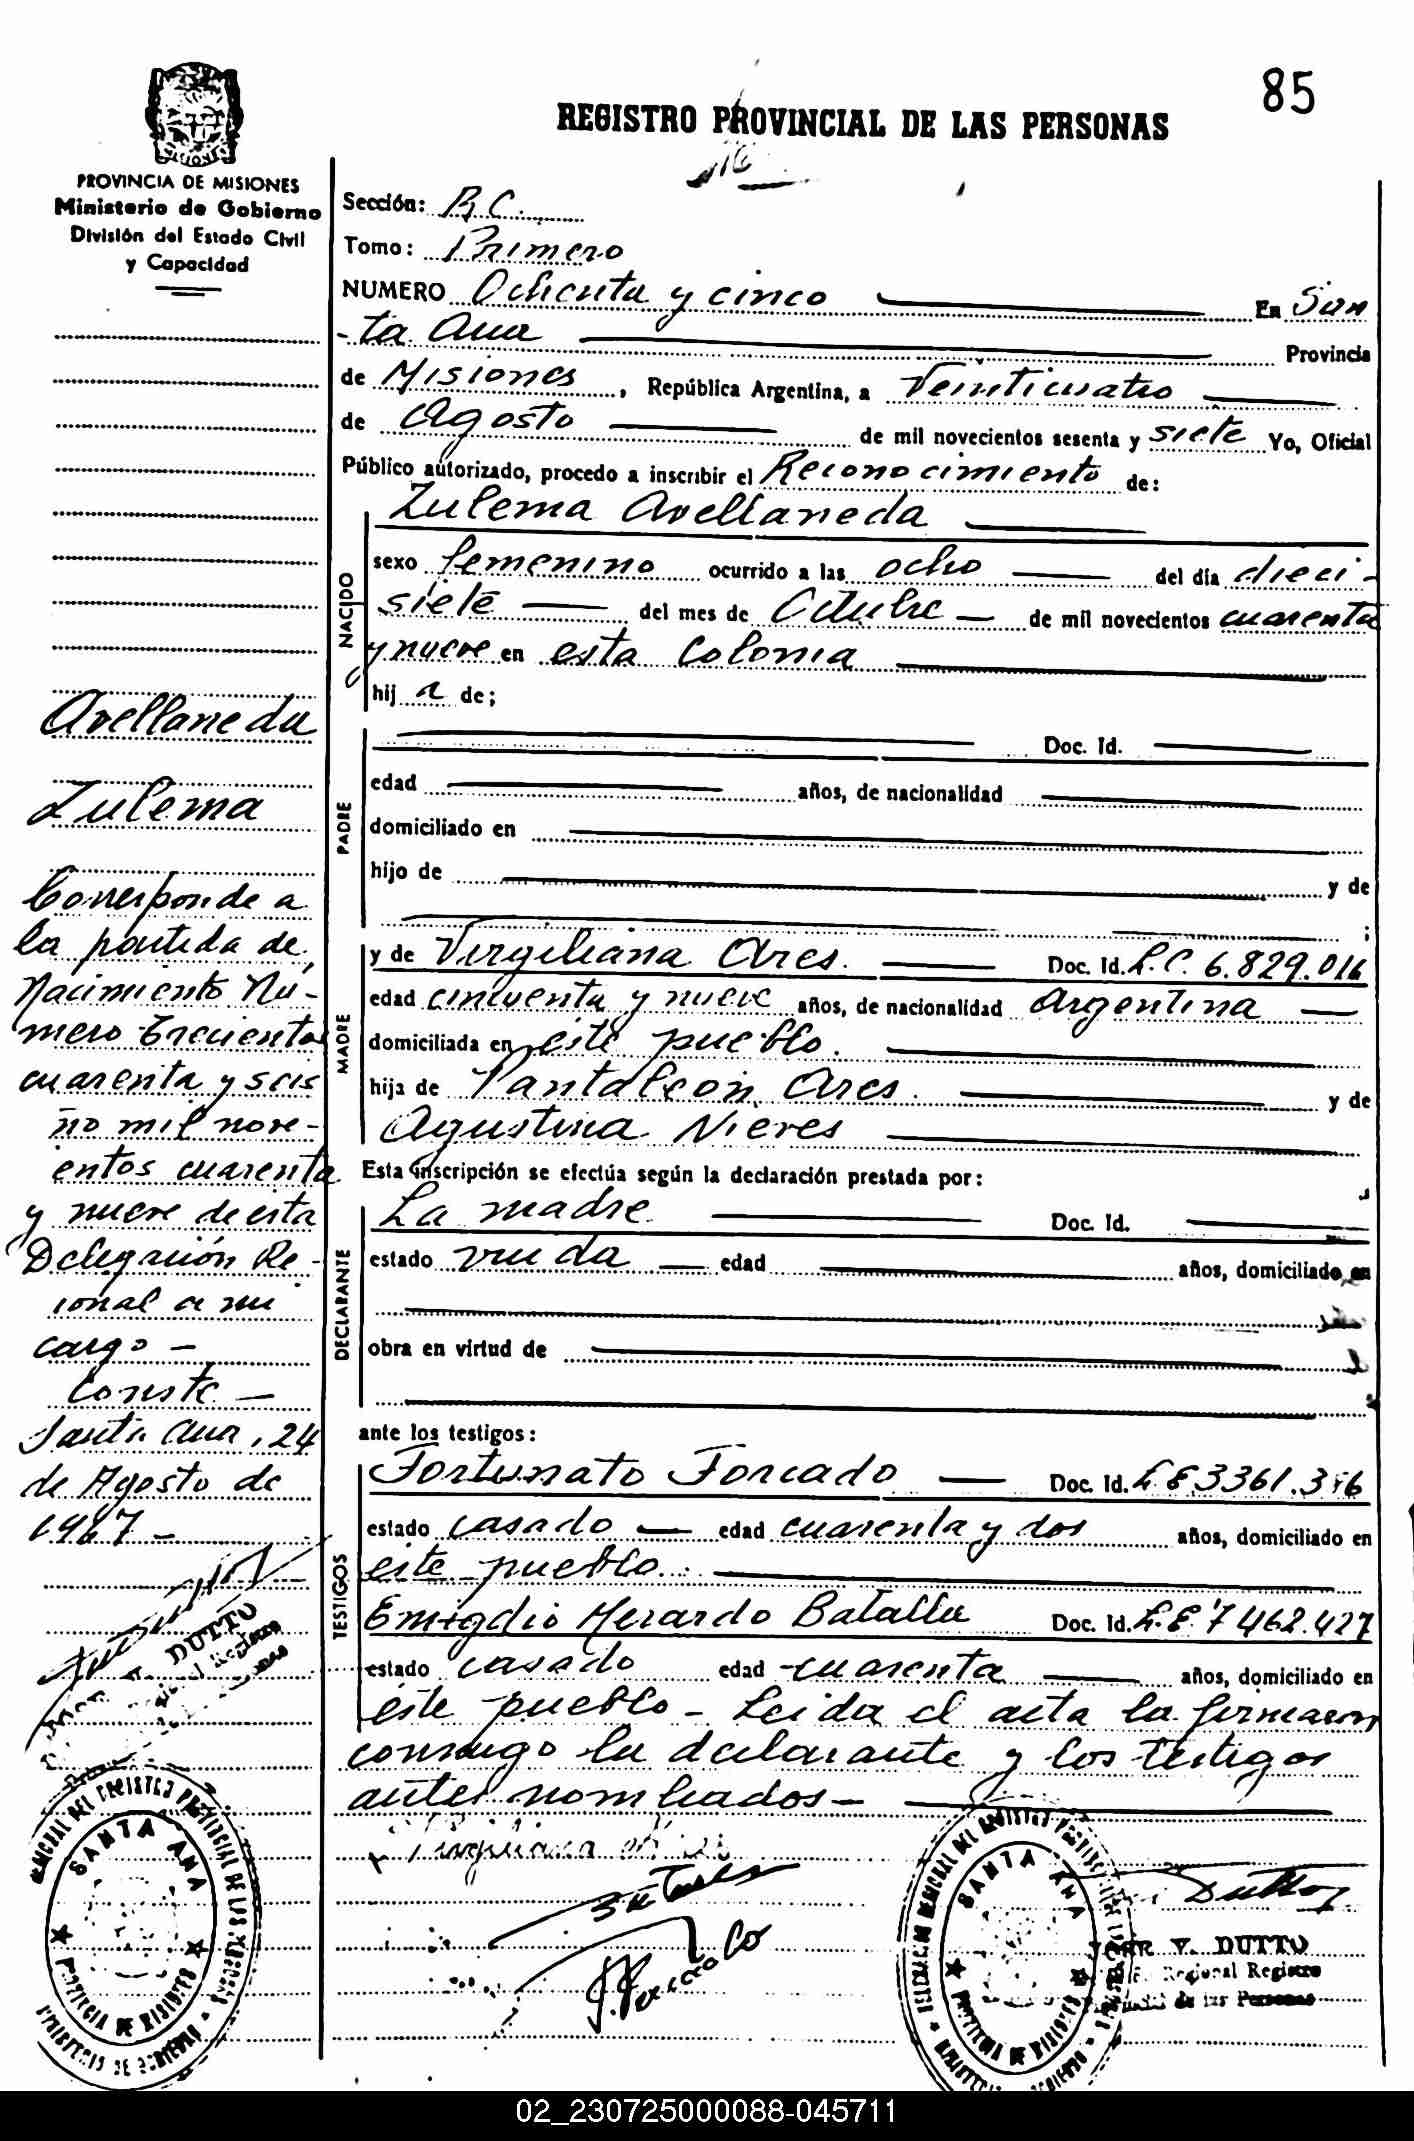 85
REGISTRO PROVINCIAL DE LAS PERSONAS
PROVINCIA DE MISIONES
Ministerio de Gobierno
División del Estado Civil
y Capacidad
Sección: R.C.
Tomo: Primero
NUMERO Ochenta y cinco En San
-ta Ana Provincia
de Misiones, República Argentina, a Veinticuatro
de Agosto de mil novecientos sesenta y siete Yo, Oficial
Público autorizado, procedo a inscribir el Reconocimiento de:
Zulema Avellaneda
NACIDO
sexo femenino ocurrido a las ocho del día dieci-
siete del mes de Octubre de mil novecientos cuarenta
y nueve en esta Colonia
hij a de;
PADRE
Doc. Id.
edad años, de nacionalidad
domiciliado en
hijo de y de
;
MADRE
y de Virgiliana Ares. Doc. Id. L.C. 6.829.016
edad cincuenta y nueve años, de nacionalidad Argentina
domiciliada en este pueblo.
hija de Pantaleon Ares. y de
Agustina Nieves
Esta inscripción se efectúa según la declaración prestada por:
DECLARANTE
La madre Doc. Id.
estado viuda edad años, domiciliado en
obra en virtud de
ante los testigos:
TESTIGOS
Fortunato Forcado Doc. Id. L.E. 3361.
estado casado edad cuarenta y dos años, domiciliado en
este pueblo.
Emigdio Herardo Batalla Doc. Id. L.E. 7462.427
estado casado edad cuarenta años, domiciliado en
este pueblo - Leida el acta la firmaron
consigo la declarante y los testigos
antes nombrados-
Avellaneda
Zulema
Corresponde a
la partida de
Nacimiento Nú-
mero Trecientos
cuarenta y seis
ño mil nove-
entos cuarenta
y nueve de esta
Delegación Re-
ional a mi
cargo -
Conste -
Santa Ana, 24
de Agosto de
1967 -
V. DUTTO
Registro
SANTA ANA
PROVINCIA DE MISIONES
MINISTERIO DE GOBIERNO
SANTA ANA
PROVINCIA DE MISIONES
V. DUTTO
Regional Registro
de las Personas
02_230725000088-045711